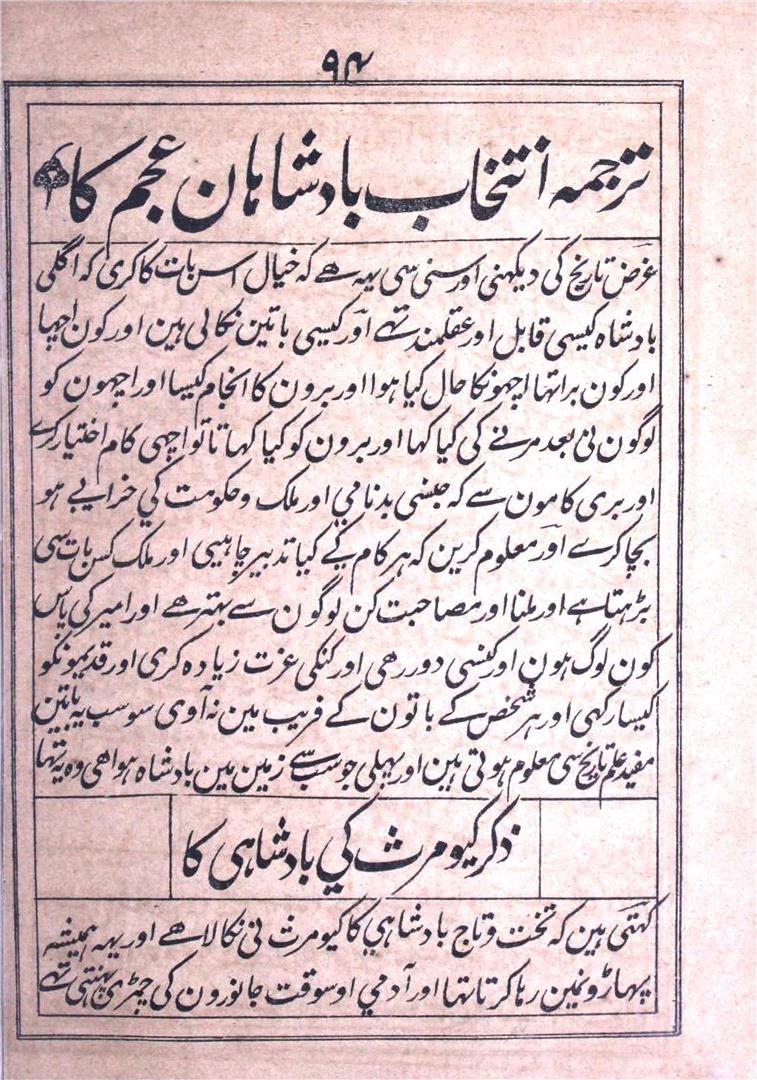 ۹۴
ترجمہ انتخاب بادشاہان عجم کا
غرض تاریخ کی دیکہنی اور سننی سی یہہ ھے کہ خیال اس بات کا کری کہ اگلی
بادشاہ کیسی قابل اور عقلمند تہے اور کیسی باتین نکالی ہین اور کون اچہا
اور کون برا تہا اچہونکا حال کیا ہوا اور برون کا انجام کیسا اور اچہون کو
لوگون نی بعد مرنے کی کیا کہا اور برون کو کیا کہا تا تو اچہی کام اختیار کرے
اور بری کامون سے کہ جسی بدنامي اور ملک و حکومت کي خرابے ہو
بچا کرے اور معلوم کرین کہ ہر کام کے کیا تدبیر چاہیی اور ملک کس بات سی
بڑہتا ہے اور ملنا اور مصاحبت کن لوگون سے بہتر ھے اور امیر کی پاس
کون لوگ ہون اور کنسی دور رھی اور کنکی عزت زیادہ کری اور قدیمونکو
کیسا رکہی اور ہر شخص کے باتون کے فریب مین نہ آوی سو سب یہ باتین
مفید علم تاریخ سی معلوم ہوتی ہین اور پہلی جو سب سے زمین مین بادشاہ ہوا ھی وہ یہ تہا
ذکر کیومرث کي بادشاہی کا
کہتی ہین کہ تخت و تاج بادشاہي کا کیومرث نی نکالا ھے اور یہہ ہمیشہ
پہاڑونمین رہا کرتا تہا اور آدمي اوسوقت جانورون کی چمڑی پہنتی تہے